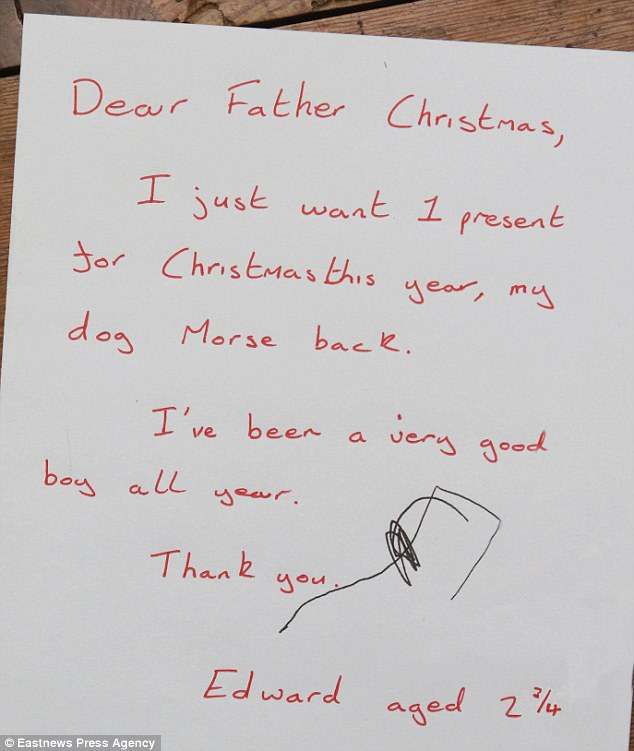 Dear Father Christmas,
I just want 1 present
for Christmas this year, my
dog Morse back.
I've been a very good
boy all year.
Thank you.
Edward aged 2 3/4
© Eastnews Press Agency